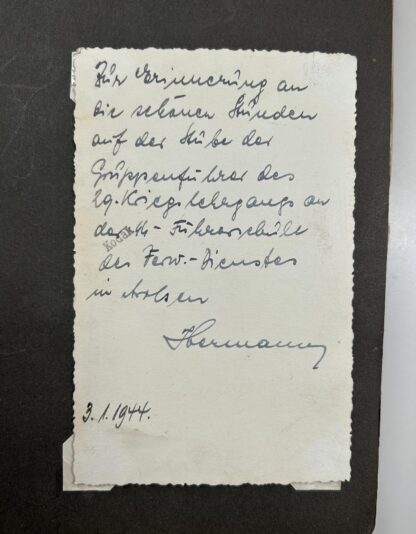 Zur Erinnerung an
die schönen Stunden
auf der Stube der
Gruppenführer des
29. Kriegslehrgangs an
der SS-Führerschule
des Verw.-Dienstes
in Arolsen
Hermann
3.1.1944.
Kodak